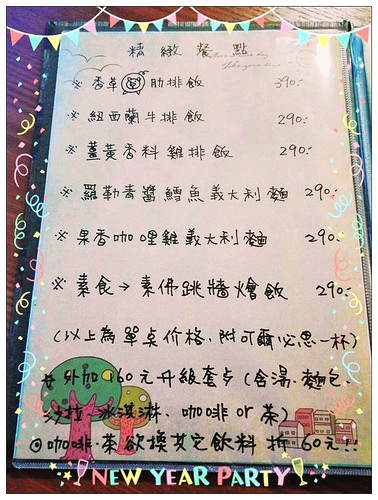 精緻餐點
※ 香草🐷肋排飯 390.-
※ 紐西蘭牛排飯 290.-
※ 薑黃香料雞排飯 290.-
※ 羅勒青醬鱈魚義大利麵 290.-
※ 果香咖哩雞義大利麵 290.-
※ 素食→素佛跳牆燴飯 290.-
(以上為單点价格,附可爾必思一杯)
外加160元升級套夕(含湯.麵包.
沙拉.冰淇淋、咖啡or茶)
◎咖啡.茶欲換其它飲料 折60元!!
NEW YEAR PARTY